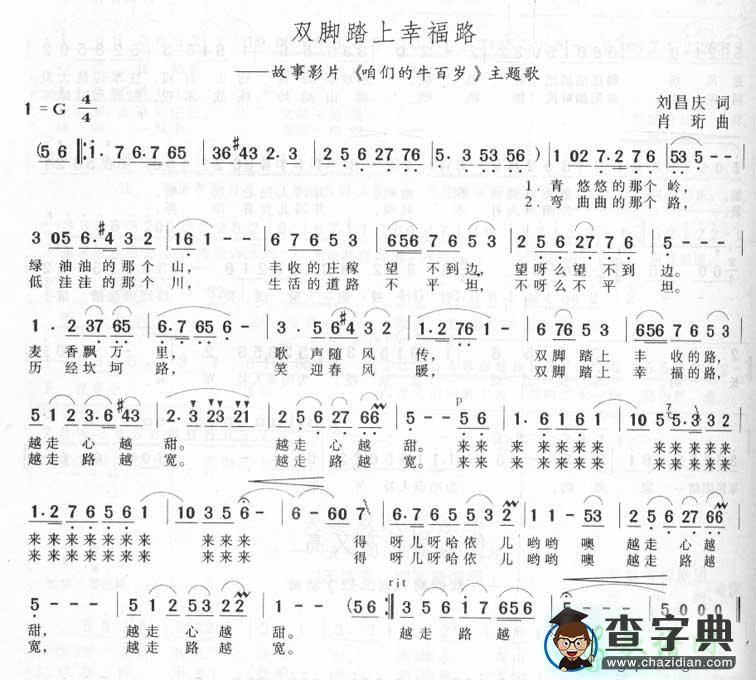 双脚踏上幸福路
——故事影片《咱们的牛百岁》主题歌
1 = G 4/4
刘昌庆 词
肖珩 曲
(5 6 ‖: 1. 7 6.7 65 | 36 #43 2.3 | 2 5 6 27 76 | 5.3 53 56 | 5 - - - ) | 1 02 7.2 76 | 53 5 - - |
1.青 悠悠的那个 岭,
2.弯 曲曲的那个 路,
3 05 6.#4 3 2 | 16 1 - - | 6 7 6 5 3 | 656 7 6 5 3 | 2 5 6 27 6 | 5 - - - |
绿 油油的那个 山, 丰收的庄稼 望 不到边, 望呀么望 不到 边。
低 洼洼的那个 川, 生活的道路 不 平坦, 不呀么不平 坦。
1 . 2 37 65 | 6.7 65 6 - | 3 . 5 6#4 3 2 | 1.2 76 1 - | 6 76 5 3 | 656 7 6 5 3 |
麦 香飘万 里, 歌 声随风 传, 双脚 踏上 丰 收的路,
历 经坎坷 路, 笑 迎春风 暖, 双脚 踏上 幸 福的路,
5 1 2 3.6 #43 | 2.3 23 21 | 2 5 6 27 66 | 5 - - 5 6 | 1.6 1 6 1 | 10 5 5.3 3 2 |
越走 心 越 甜。 越走 心 越 甜。来来 来来来来 来 来来来来
越走 路 越 宽。 越走 路 越 宽。来来 来来来来 来 来来来来
p
1.2 7 6 5 6 1 | 10 3 5 6 - | 6 - 60 7 | 6.7 6 5 3 5 3 2 | 1 1 - 53 | 2 5 6 27 66 |
来来 来来来 来来来 得 呀儿呀哈依儿 哟哟 噢 越走 心越
来来 来来来 来来来 得 呀儿呀哈依儿 哟哟 噢 越走 路越
rit
5 - - - | 5 1 2 53 22 | 1 - - (56 :‖ 5 6 1 7 656 | 5 - - - | 5 0 0 0 ‖
甜, 越走 心 越 甜。 越走 路 越
宽, 越走 路 越 宽。
查字典
www.chazidian.com